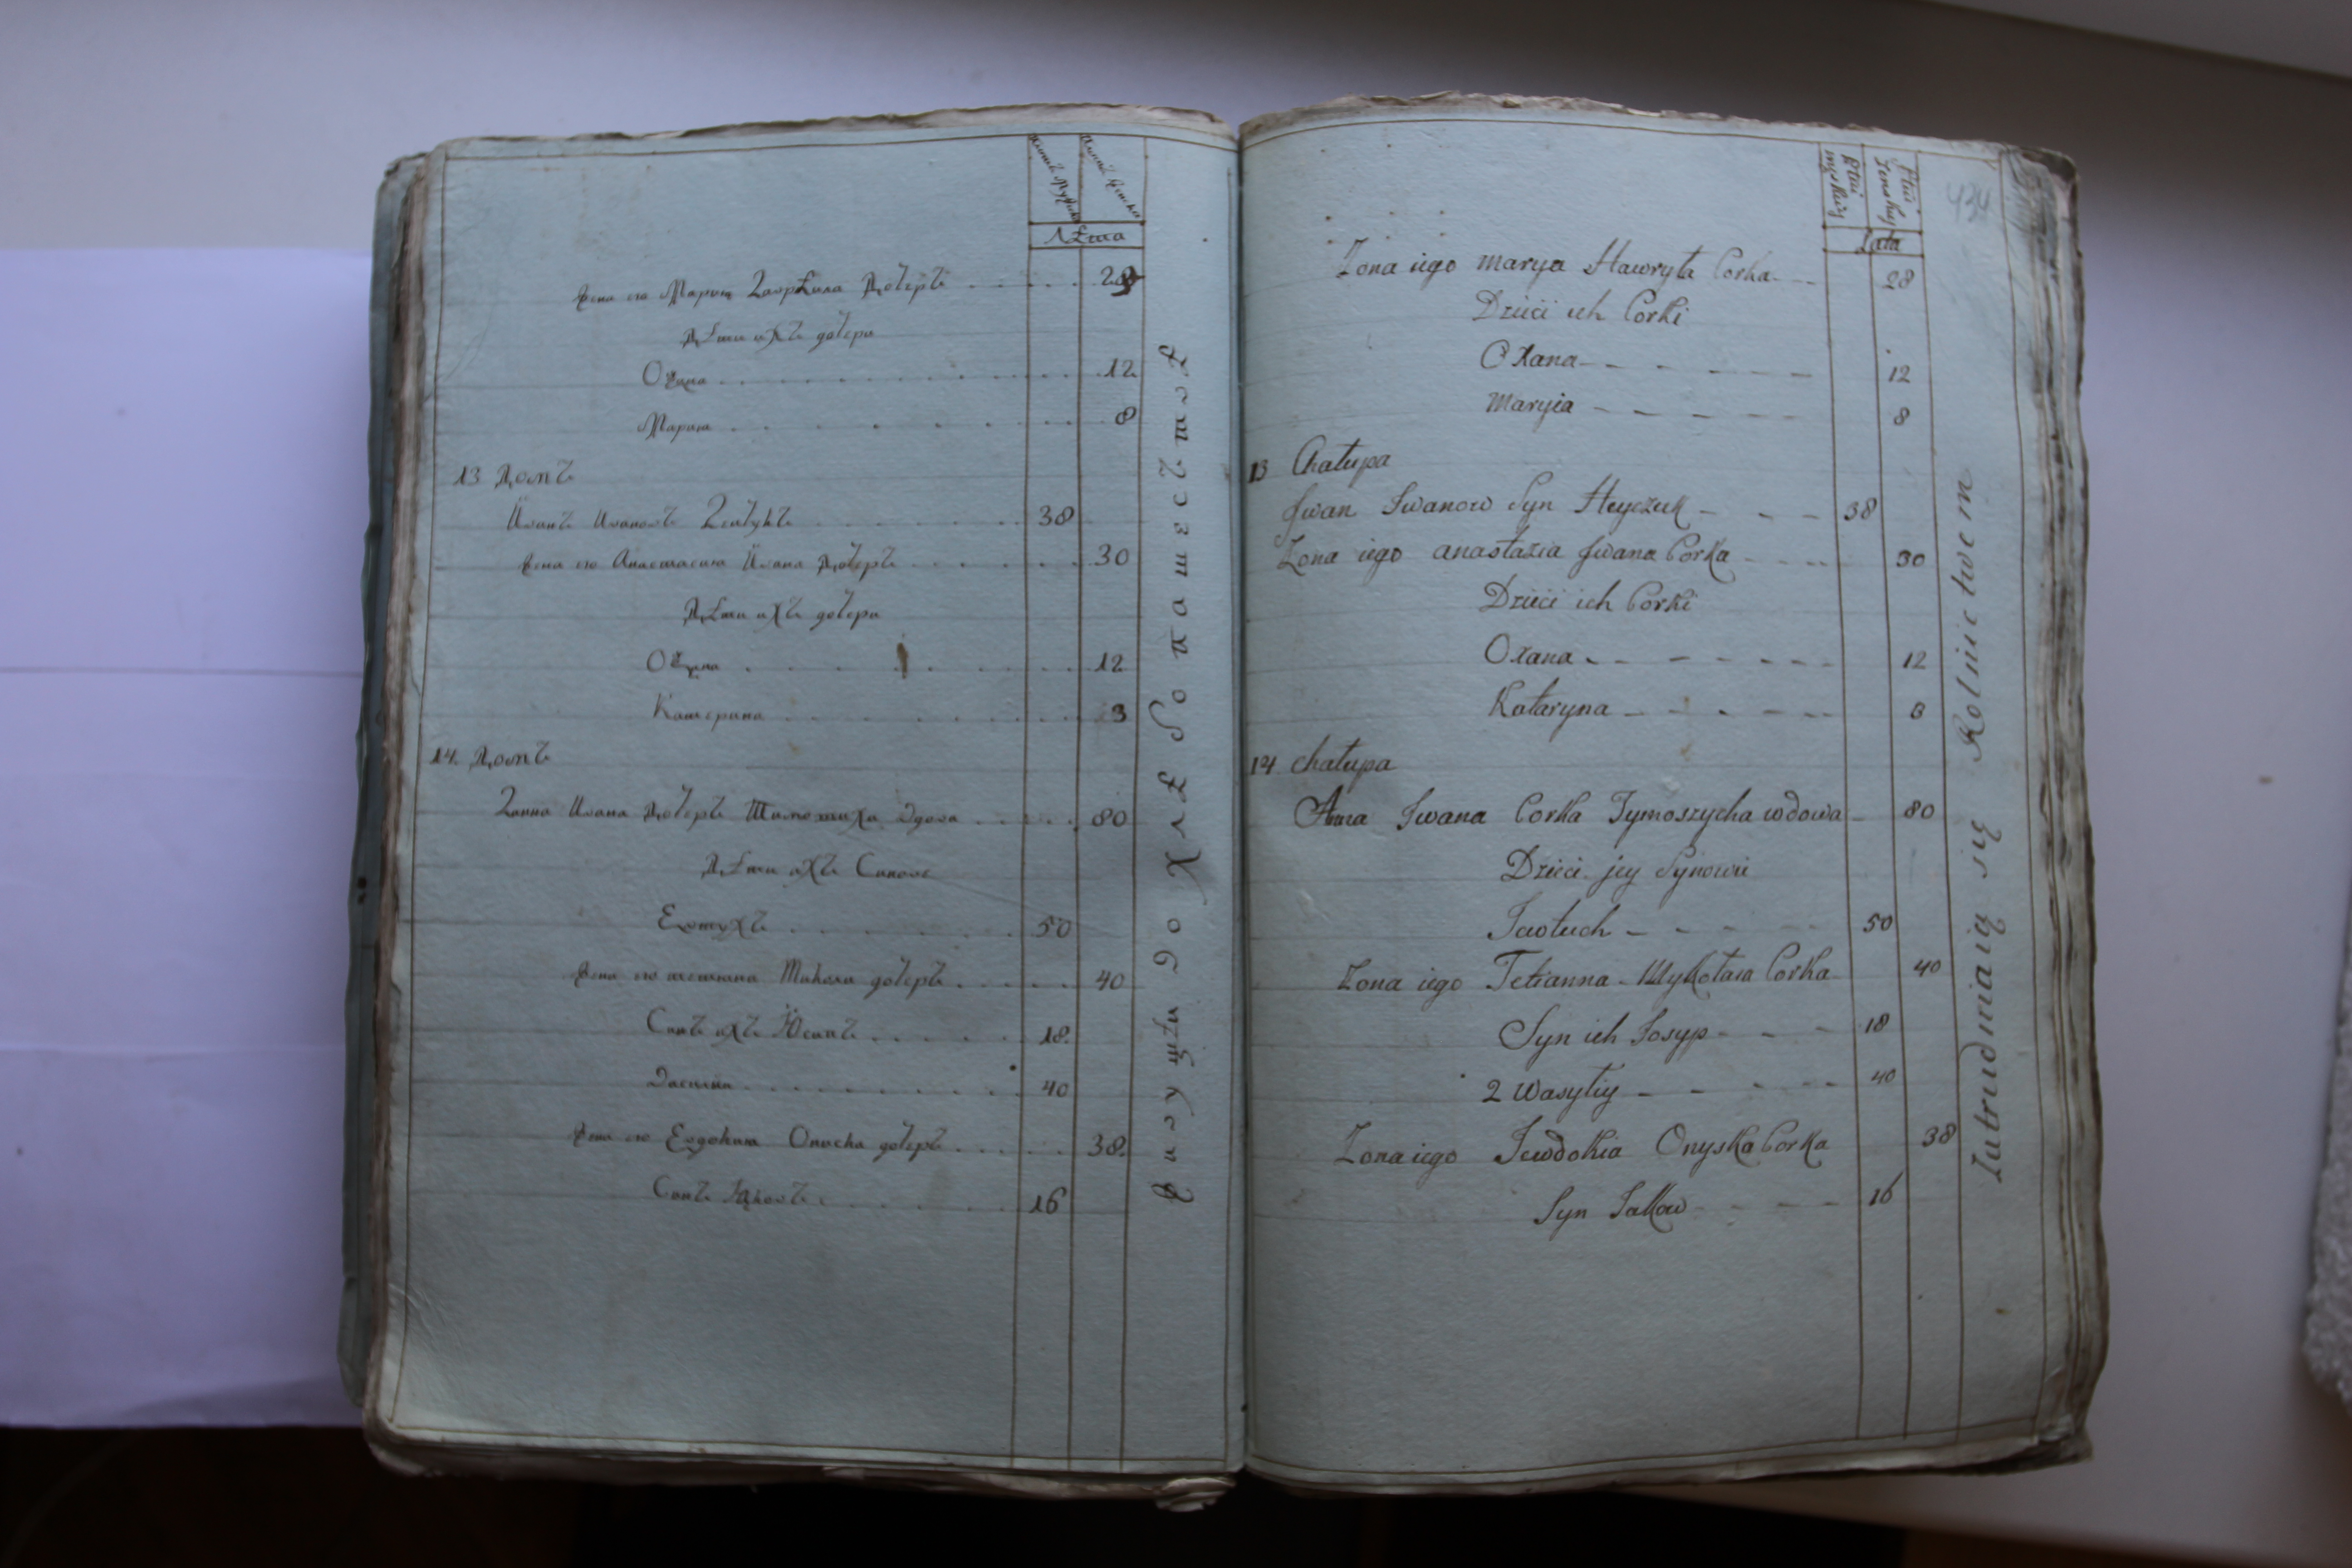 Лѣта
Жена его Мария Гаврѣила Дочеръ 28
Дѣти ихъ дочери
Оѯана 12
Мария 8
13 Домъ
Иванъ Ивановъ 38
Жена его Анастасия Ивана Дочеръ 30
Дѣти ихъ дочери
Оѯена 12
Катерина 3
14. Домъ
Ганна Ивана Дочеръ Тимошиха вдова 80
Дѣти ихъ Синове
Евтухъ 50
Жена его тетиана Миколи дочеръ 40
Синъ ихъ Юсипъ 18.
Василий 40
Жена его Евдокия Ониска дочеръ 38.
Синъ Яковъ 16
хлѣбопашествѣ
434
Płci męskiey
Płci Żenskiey
Lata
Zona iego marya Hawryła Corka 28
Dzieci ich Corki
Oxana 12
Maryia 8
13 Chałupa
Jwan Iwanow Syn Heyczuk 38
Zona iego anastazia Jwana Corka 30
Dzieci ich Corki
Oxana 12
Kataryna 3
14 chałupa
Anna Iwana Corka Tymoszycha wdowa 80
Dzieci jey Synowie
Jawtuch 50
Zona iego Tetianna Mykołaia Corka 40
Syn ich Josyp 18
2 Wasyliy 40
Zona iego Jewdokia Onyska Corka 38
Syn Jakow 16
Zatrudniaią się Rolnictwem